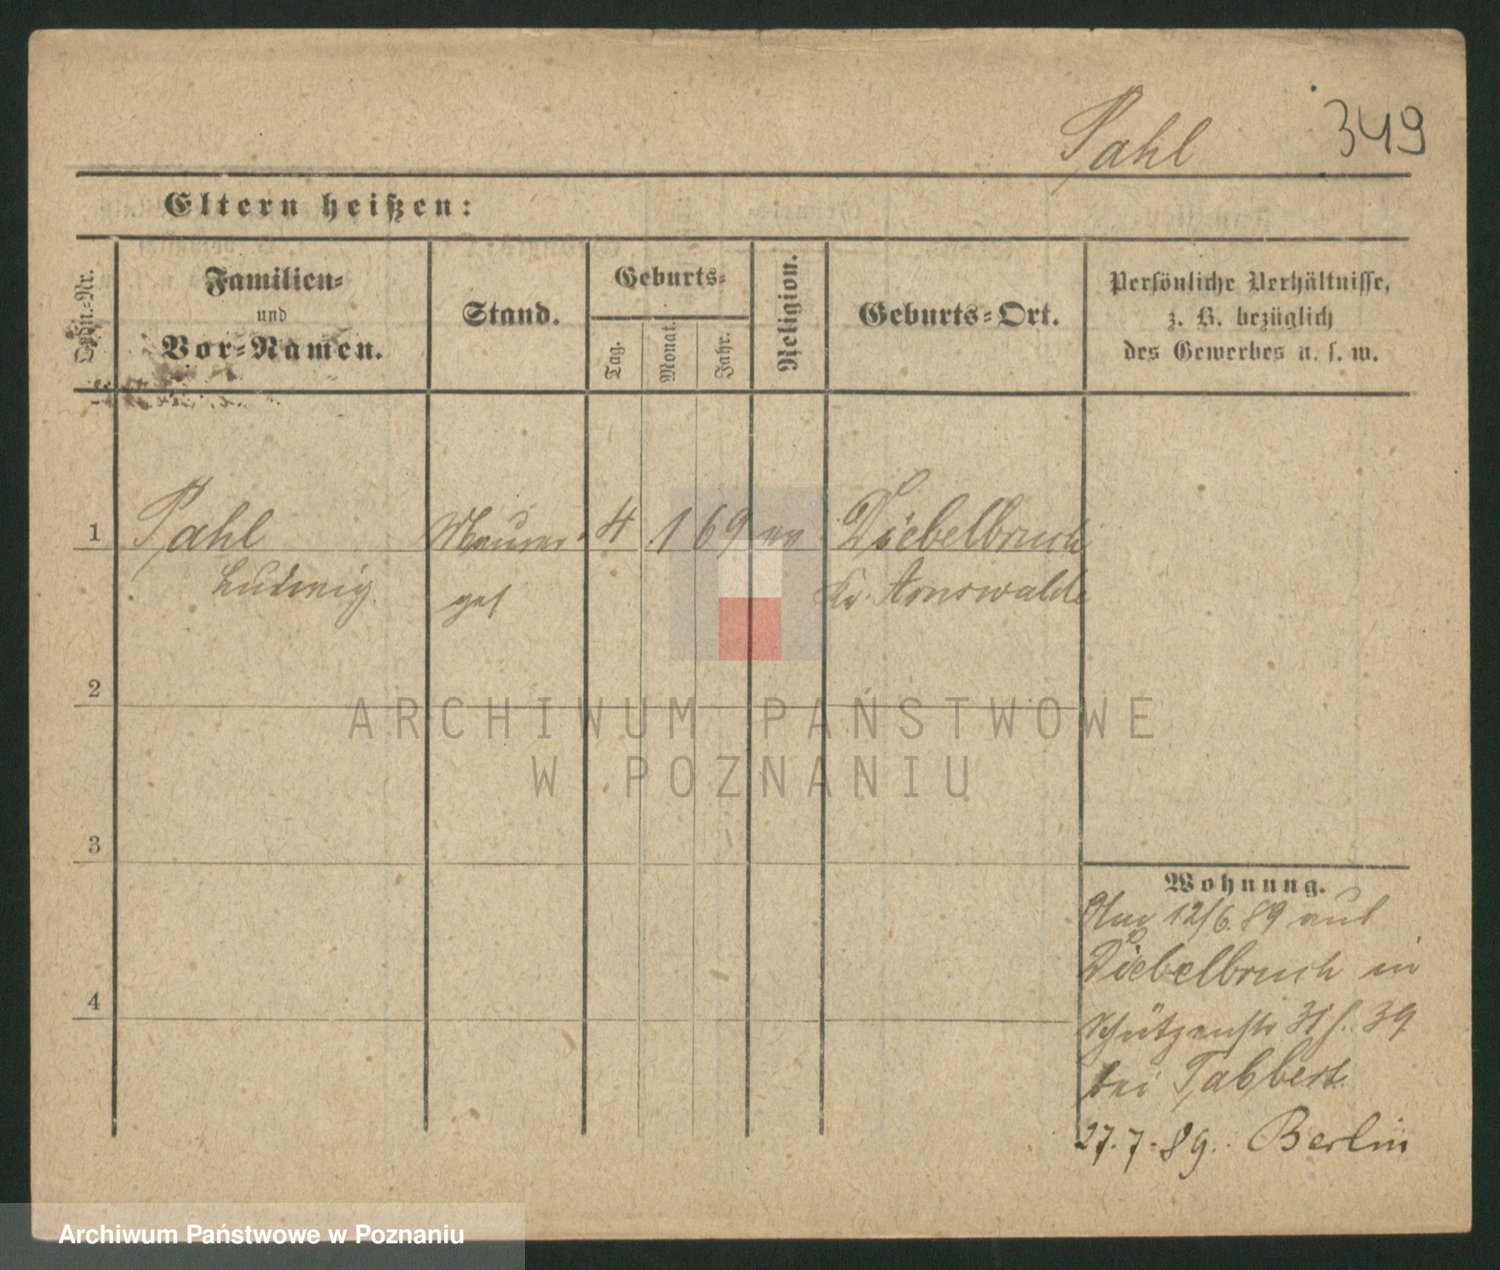 Pahl 349
Eltern heißen:
Ordn.-Nr.
Familien- und Vor-Namen.
Stand.
Geburts-
Tag.
Monat.
Jahr.
Religion.
Geburts-Ort.
Persönliche Verhältnisse,
z. B. bezüglich
des Gewerbes u. s. w.
1 Pahl Maurer- 4 1 69 ev Diebelbruch
Ludwig ges Kr. Arnswalde
2
3
4
Wohnung.
12/6. 89 aus
Diebelbruch in
Schützenstr 31 39
bei Tabbert.
27.7.89. Berlin
ARCHIWUM PAŃSTWOWE
W POZNANIU
Archiwum Państwowe w Poznaniu